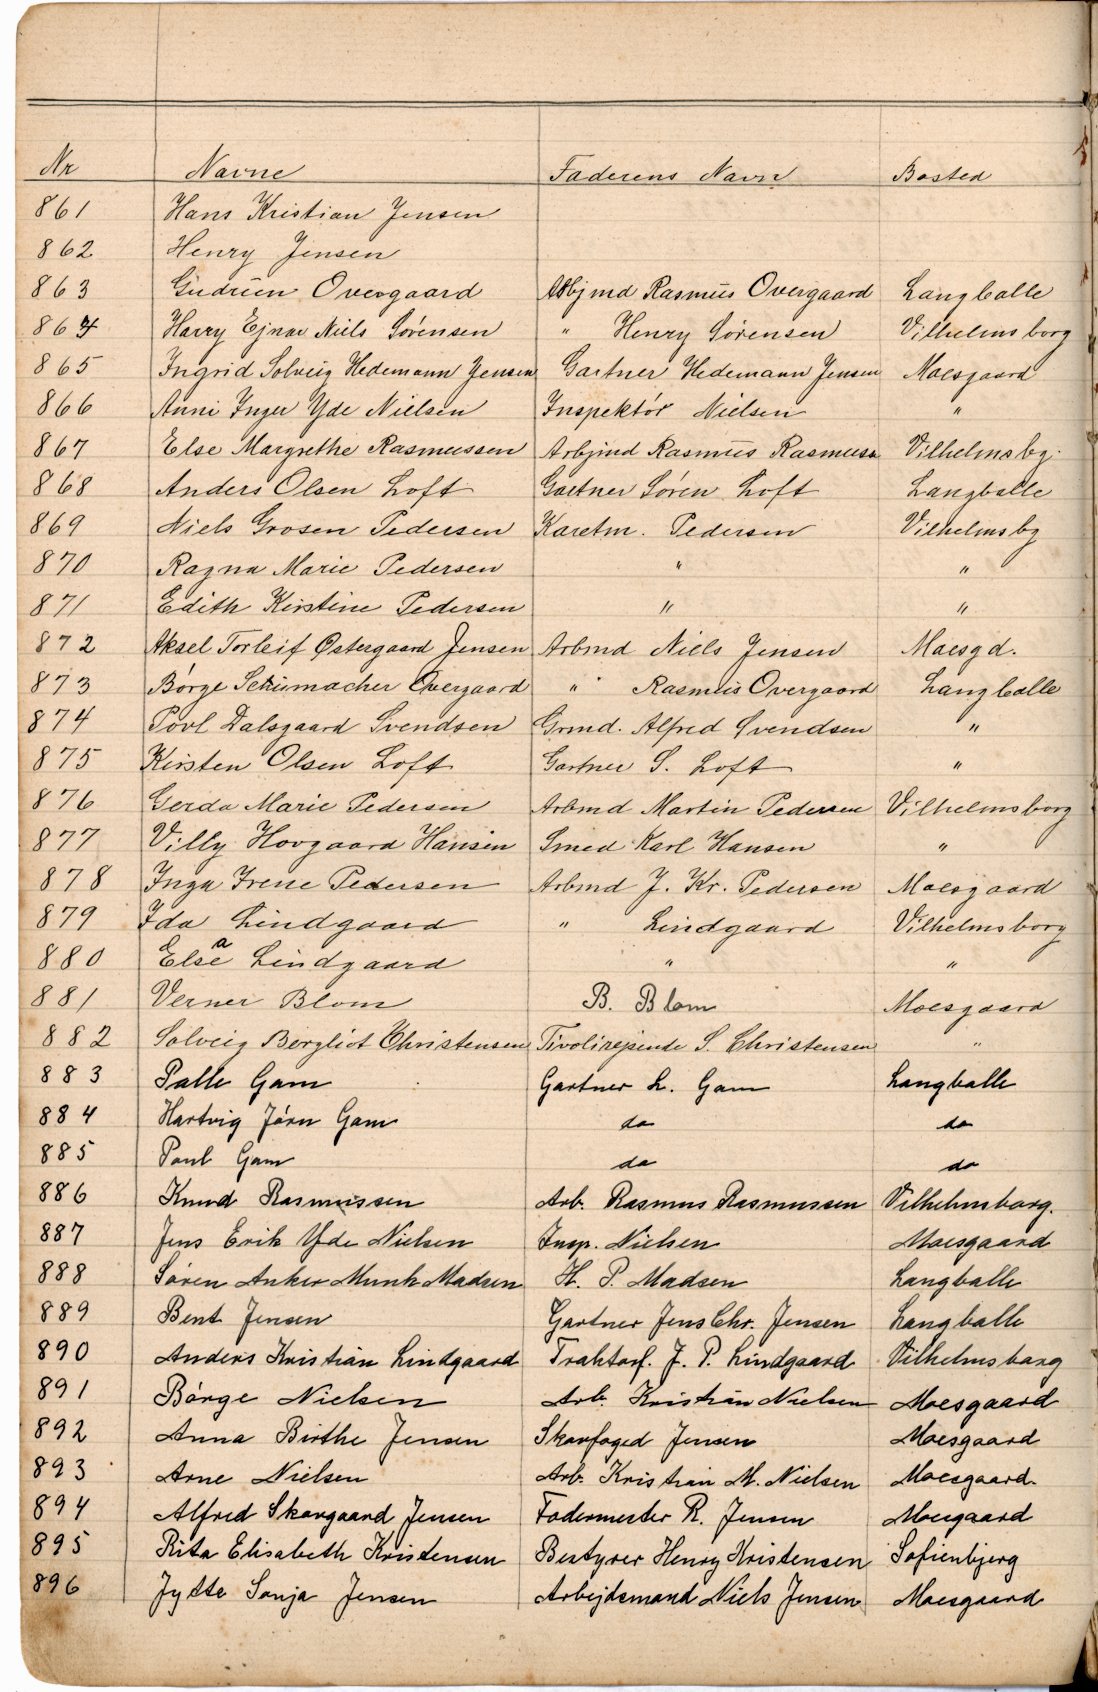 Nr Navne Faderens Navn Bosted
861 Hans Kristian Jensen
862 Henry Jensen
863 Gudrun Overgaard Arbjmd Rasmus Overgaard Langballe
864 Harry Ejnar Niels Sørensen " Henry Sørensen Vilhelmsborg
865 Ingrid Solveig Hedemann Jensen Gartner Hedemann Jensen Moesgaard
866 Anni Inger Yde Nielsen Inspektør Nielsen "
867 Else Margrethe Rasmussen Arbjmd Rasmus Rasmussn Vilhelmsbg.
868 Anders Olsen Loft Gartner Søren Loft Langballe
869 Niels Grosen Pedersen Karetm. Pedersen Vilhelmsbg
870 Ragna Marie Pedersen " "
871 Edith Kirstine Pedersen " "
872 Aksel Torleif Østergaard Jensen Arbmd Niels Jensen Moesgd.
873 Børge Schumacher Overgaard " Rasmus Overgaard Langballe
874 Povl Dalsgaard Svendsen Grmd. Alfred Svendsen "
875 Kirsten Olsen Loft Gartner S. Loft "
876 Gerda Marie Pedersen Arbmd Martin Pedersen Vilhelmsborg
877 Villy Hovgaard Hansen Smed Karl Hansen "
878 Inga Irene Pedersen Arbmd J. Kr. Pedersen Moesgaard
879 Ida Lindgaard " Lindgaard Vilhelmsborg
880 Elsa Lindgaard " "
881 Verner Blom B. Blom Moesgaard
882 Solveig Bergliot Christensen Tivolirejsende S. Christensen "
883 Palle Gam Gartner L. Gam Langballe
884 Hartvig Jørn Gam do do
885 Poul Gam do do
886 Knud Rasmussen Arb. Rasmus Rasmussen Vilhelmsborg.
887 Jens Erik Yde Nielsen Insp. Nielsen Moesgaard
888 Søren Anker Munk Madsen H. P. Madsen Langballe
889 Bent Jensen Gartner Jens Chr. Jensen Langballe
890 Anders Kristian Lindgaard Traktorf. J. P. Lindgaard Vilhelmsborg
891 Børge Nielsen Arb. Kristian Nielsen Moesgaard
892 Anna Birthe Jensen Skovfoged Jensen Moesgaard
893 Arne Nielsen Arb. Kristian M. Nielsen Moesgaard.
894 Alfred Skovgaard Jensen Fodermester R. Jensen Moesgaard
895 Rita Elisabeth Kristensen Bestyrer Henry Kristensen Sofienbjerg
896 Jytte Sonja Jensen Arbejdsmand Niels Jensen Moesgaard